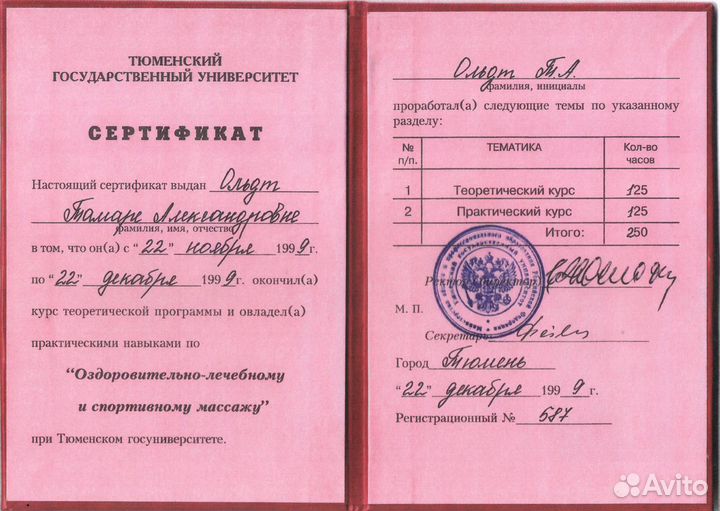 ТЮМЕНСКИЙ
ГОСУДАРСТВЕННЫЙ УНИВЕРСИТЕТ
СЕРТИФИКАТ
Настоящий сертификат выдан Ольдт
Тамаре Александровне
фамилия, имя, отчество
в том, что он(а) с “22” ноября 1999г.
по “22” декабря 1999г. окончил(а)
курс теоретической программы и овладел(а)
практическими навыками по
“Оздоровительно-лечебному
и спортивному массажу”
при Тюменском госуниверситете.
Ольдт Т.А.
фамилия, инициалы
проработал(а) следующие темы по указанному
разделу:
№ п/п. ТЕМАТИКА Кол-во часов
1 Теоретический курс 125
2 Практический курс 125
Итого: 250
Ректор (директор)
М. П.
Секретарь
Город Тюмень
“22” декабря 1999г.
Регистрационный № 587
Avito